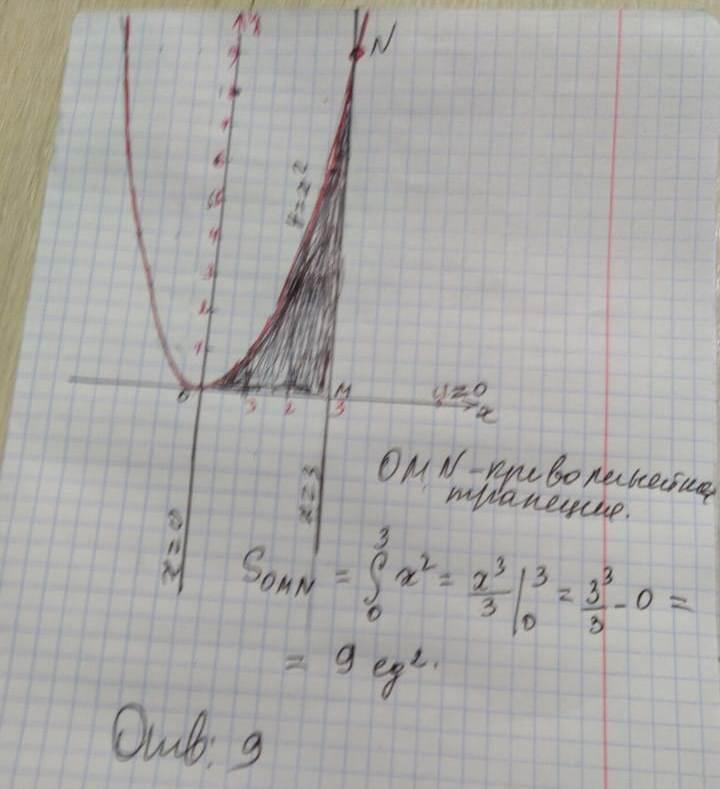 y
9
N
y = x²
6
5
4
3
2
1
0
M
3
2
3
y=0
x
x=0
x=3
OMN - криволинейная
трапеция.
S_OMN = ∫₀³ x² = x³/3 |₀³ = 3³/3 - 0 =
= 9 ед².
Отв: 9